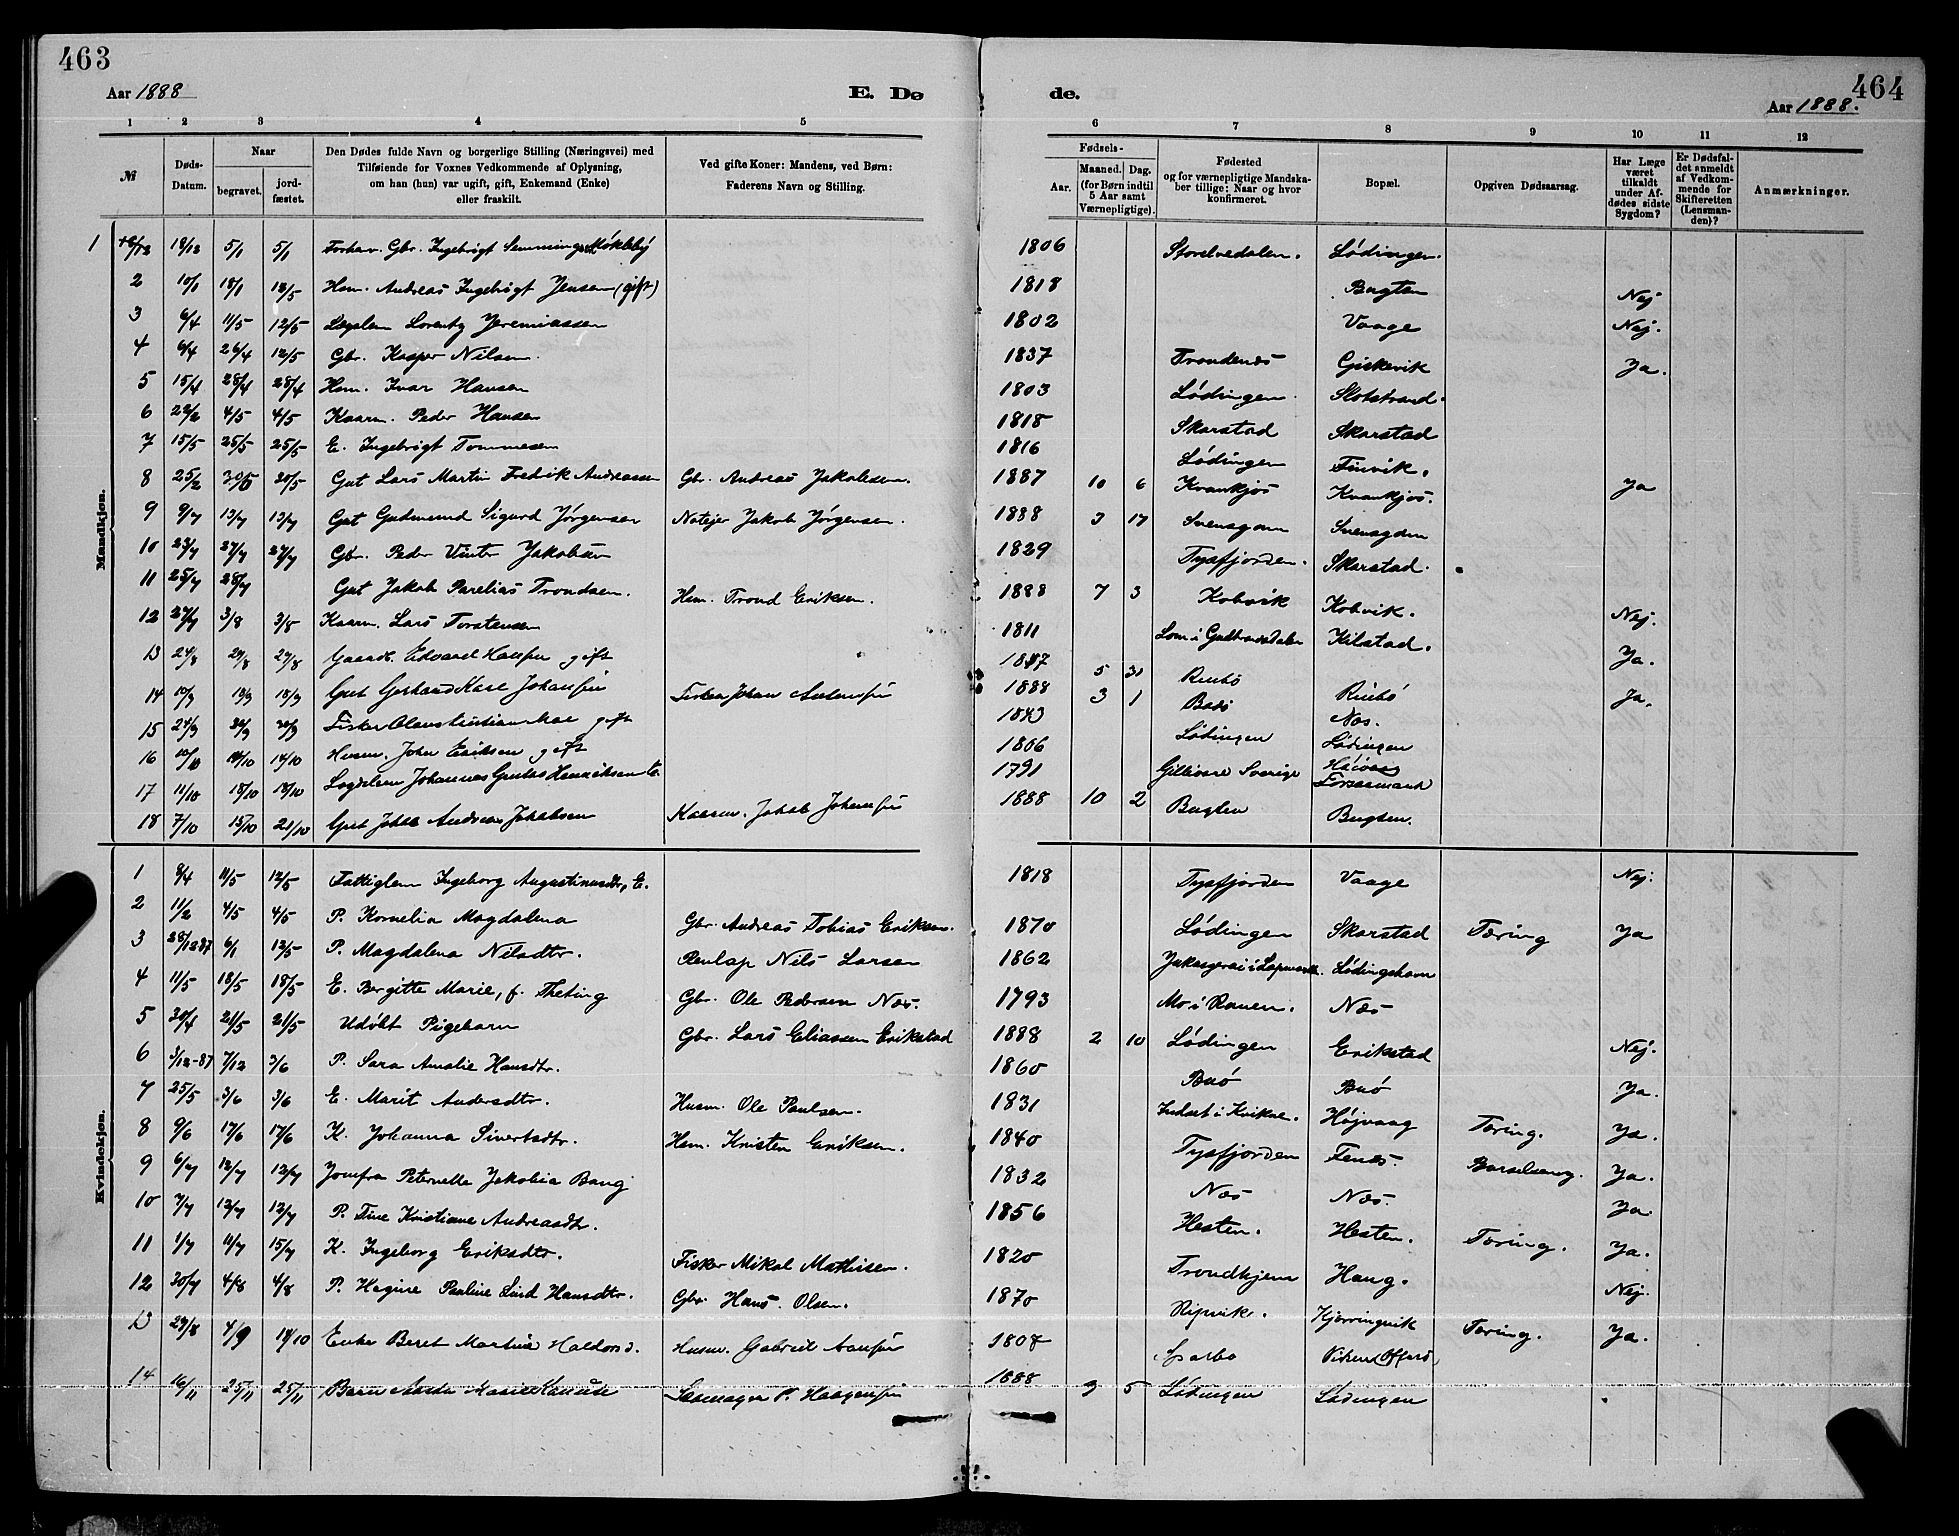 463
464
Aar 1888
E. Dø
de.
Aar 1888.
1 2 3 4 5 6 7 8 9 10 11 12
№
Døds-Datum.
Naar
begravet.
jord-fæstet.
Den Dødes fulde Navn og borgerlige Stilling (Næringsvei) med
Tilføiende for Voxnes Vedkommende af Oplysning,
om han (hun) var ugift, gift, Enkemand (Enke)
eller fraskilt.
Ved gifte Koner: Mandens, ved Børn:
Faderens Navn og Stilling.
Fødsels-
Aar.
Maaned. Dag.
(for Børn indtil
5 Aar samt
Værnepligtige).
Fødested
og for værnepligtige Mandska-
ber tillige: Naar og hvor
konfirmeret.
Bopæl.
Opgiven Dødsaarsag.
Har Læge
været
tilkaldt
under Af-
dødes sidste
Sygdom?
Er Dødsfal-
det anmeldt
af Vedkom-
mende for
Skifteretten
(Lensman-
den)?
Anmærkninger.
Mandkjøn.
1 18/12 5/1 5/1 Forhav. Gbr. Ingebrigt Semmingsen Møkleby 1806 Storelvedalen. Lødingen.
2 10/1 18/1 18/5 Hsm. Andreas Ingebrigt Jensen (gift) 1818 Bugten Nej
3 6/4 11/5 12/5 Lægslem Lorentz Jeremiassen 1802 Vaage Nej.
4 6/4 26/4 12/5 Gbr. Kasper Nilsen. 1837 Trondenes Giskevik Ja.
5 15/4 28/4 28/4 Hsm. Ivar Hansen 1803 Lødingen. Slotstrand.
6 22/2 4/5 4/5 Kaarm. Peder Hansen 1818 Skarstad Skarstad
7 15/5 25/5 25/5 E. Ingebrigt Tommesen 1816 Lødingen Finvik.
8 25/2 20/5 20/5 Gut Lars Martin Fredrik Andreassen Gbr. Andreas Jakobsen. 1887 10 6 Kvankjos Kvankjos. Ja
9 9/7 13/7 13/7 Gut Gudmund Sigurd Jørgensen Notejer Jakob Jørgensen. 1888 3 17 Svensgam Svensgam
10 23/7 27/7 27/7 Gbr. Peder Winter Jakobsen 1829 Tysfjorden. Skarstad.
11 25/7 28/7 Gut Jakob Parelius Trondsen. Hsm. Trond Eriksen. 1888 7 3 Kobvik Kobvik. Nej.
12 27/7 3/8 3/8 Kaarm. Lars Torstensen 1811 Lom i Gudbrandsdalen Kilstad. Ja.
13 24/8 29/8 29/8 Gaardb. Edvard Hansen gift 1847 5 31 Rinbø Rinbø Ja.
14 10/9 18/9 18/9 Gut Gerhard Karl Johansen Fisker Johan 1888 3 1 Bodø Næs.
15 24/9 30/9 30/9 Fisker gift 1843 Lødingen Lødingen
16 10/10 14/10 14/10 Husm. John Eriksen gift 1806
17 11/10 18/10 18/10 Lægdslem Johannes Henriksen E. 1791 Gellivare Sverige
18 7/10 15/10 21/10 Gut Jakob Andreas Jakobsen Kaarm. Jakob Johansen 1888 10 2 Bugten Bugten.
Kvindekjøn.
1 8/4 11/5 12/5 Fattiglem Ingeborg Augustinusdtr, E. 1818 Tysfjorden Vaage Nej.
2 11/2 4/5 4/5 P. Kornelia Magdalena Gbr. Andreas Tobias Eriksen. 1870 Lødingen Skarstad Tæring Ja
3 28/12 87 6/1 12/5 P. Magdalena Nilsdtr. Renlap Nils Larsen 1862 Lødingshavn
4 11/5 18/5 18/5 E. Bergitte Marie, f. Theting Gbr. Ole Pedersen Næs. 1793 Mo i Ranen. Næs
5 30/4 21/5 21/5 Udøbt Pigebarn Gbr. Lars Eliassen Erikstad 1888 2 10 Lødingen Erikstad Nej.
6 3/12-87 7/12 3/6 P. Sara Amalie Hansdtr. 1860 Buø Buø Ja.
7 25/5 3/6 3/6 E. Marit Andersdtr. Husm. Ole Paulsen. 1831 Indset i Kvikne. Højvaag Tæring. Ja.
8 9/6 17/6 17/6 K. Johanna Sivertsdtr. Hsm. Kristen Eriksen. 1840 Tysfjorden Fenæs. Barselseng. Ja.
9 6/7 12/7 12/7 Jomfru Peternelle Jakobia Bang 1832 Næs Næs. Ja.
10 7/7 12/7 12/7 P. Tine Kristiane Andreasdtr. 1856 Hesten. Hesten. Tæring. Ja.
11 1/7 11/7 15/7 K. Ingeborg Eriksdtr. Fisker Mikal Mathisen. 1820 Trondhjem Haug. Nej.
12 30/7 4/8 4/8 P. Hagine Pauline Lind Hansdtr. Gbr. Hans Olsen. 1870 Ripvik. Kjørringvik Tæring. Ja.
13 29/8 4/9 14/10 Enke Beret Martine Haldorsd. Husm. Gabriel 1808 Sparbo
14 16/11 25/11 25/11 Barn Marie P. Haagensen 1888 9 5 Lødingen Lødingen